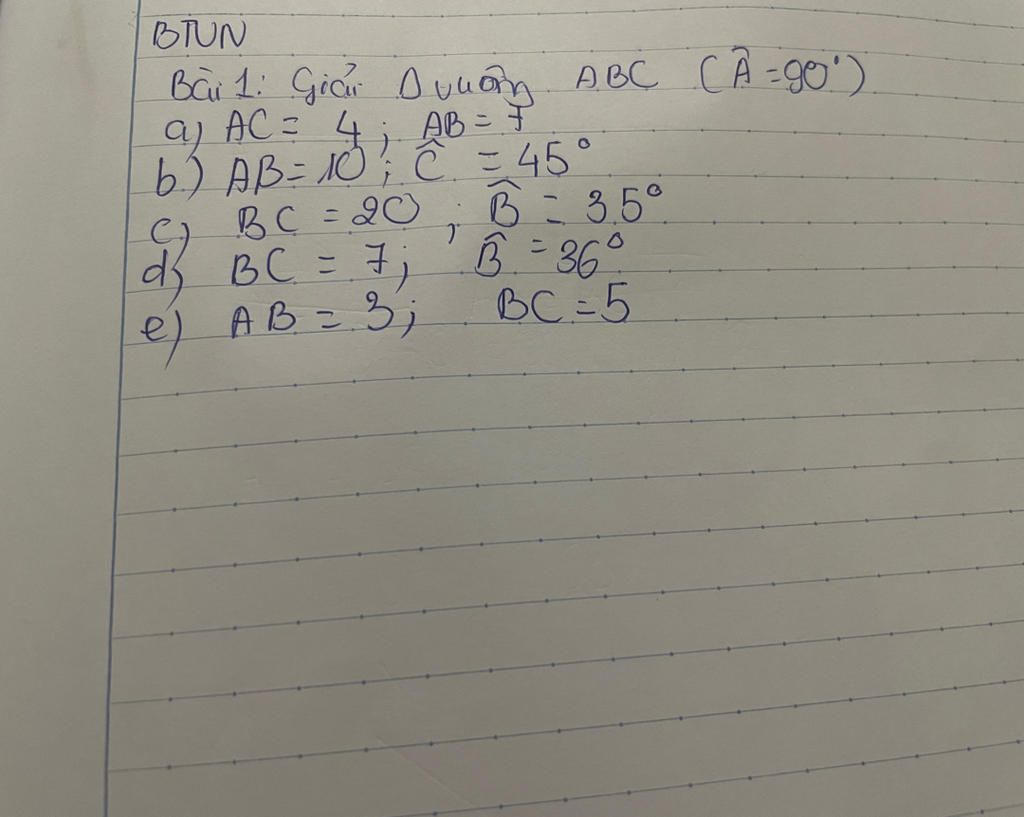 BTVN
Bài 1: Giải Δ vuông ABC (Â = 90°)
a) AC = 4 ; AB = 7
b) AB = 10 ; Ĉ = 45°
c) BC = 20 ; B̂ = 35°
d) BC = 7 ; B̂ = 36°
e) AB = 3 ; BC = 5